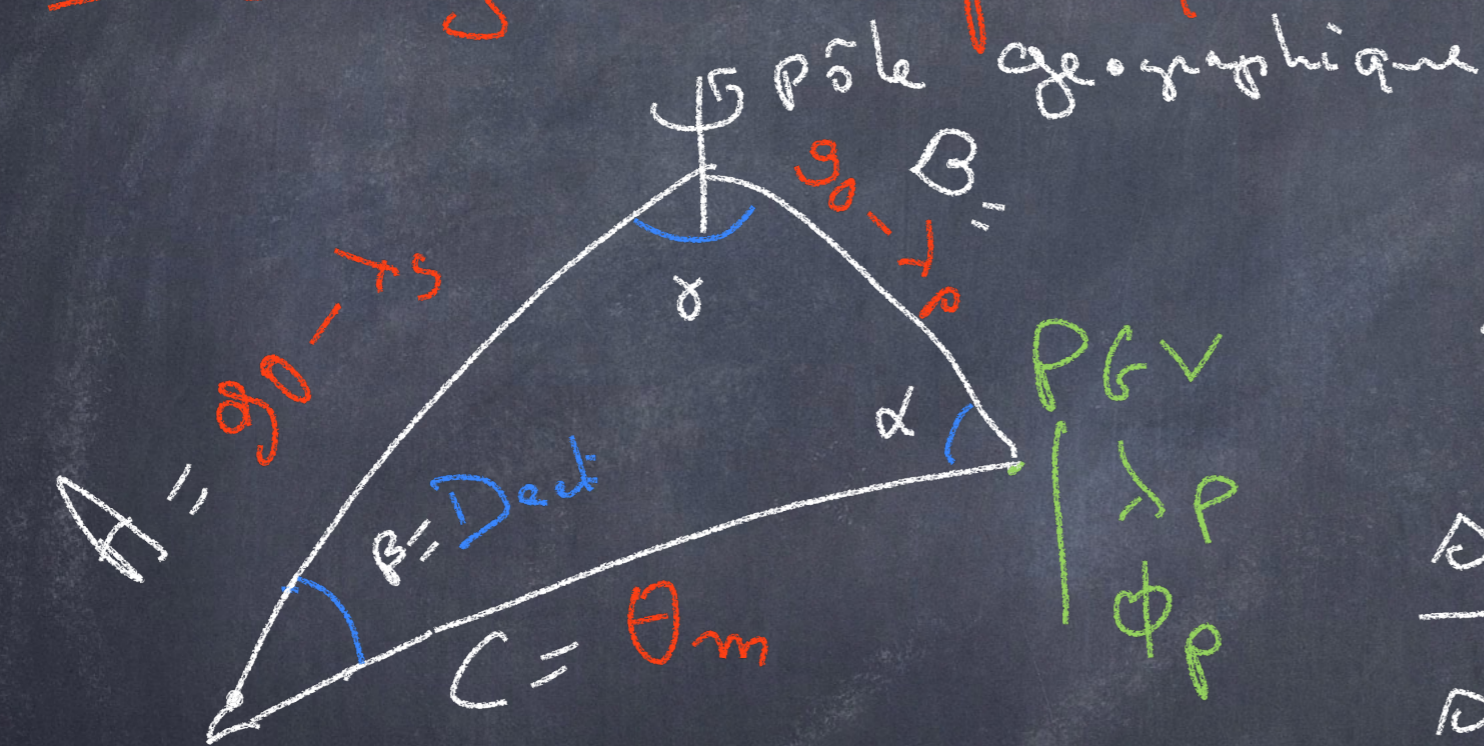 pôle geographique
B =
90 - λp
γ
A = 90 - λs
α
PGV
λp
ϕp
β = Decl
C = θm